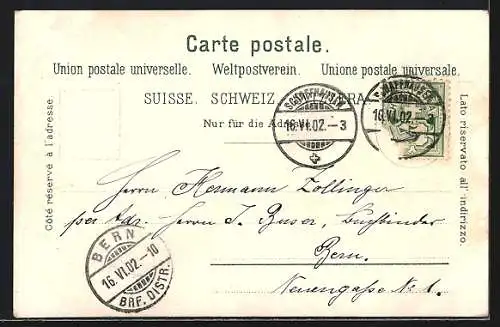 Carte postale.
Union postale universelle. Weltpostverein. Unione postale universale.
SUISSE. SCHWEIZ. RA.
Nur für die Ad
Côté réservé à l'adresse.
Lato riservato all' indirizzo.
SCHAFFHAUSEN
16.VI.02.-3
SCHAFFHAUSEN
16.VI.02.-3
Herrn Hermann Zollinger
per Adr. Herrn J. Buser, Buchbinder
Bern.
Neuengasse No 1.
BERN
16.VI.02.-10
BRF. DISTR.